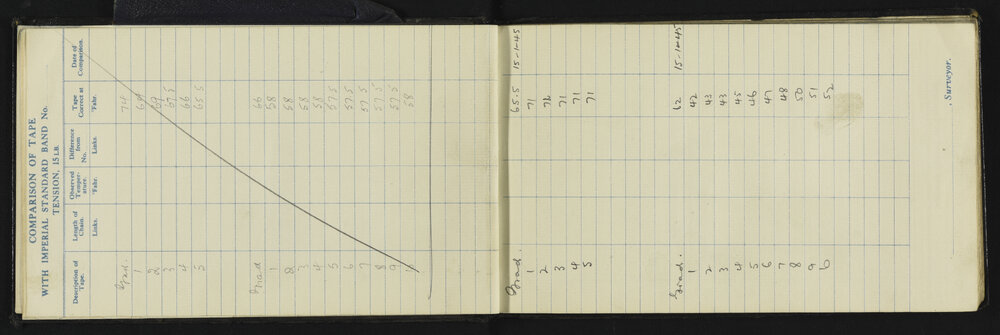 COMPARISON OF TAPE
WITH IMPERIAL STANDARD BAND No.
TENSION, 15 LB.
Description of Tape. Length of Chain. Observed Temperature. Difference from No. Tape Correct at Date of Comparison.
Links. °Fahr. Links. °Fahr.
Grad. 74
1 69
2 69
3 67.5
4 66
5 65.5
Grad 66
1 58
2 58
3 58
4 58
5 57.5
6 57.5
7 57.5
8 57.5
9 57.5
58
Grad 65.5 15-1-45
1 71
2 72
3 71
4 71
5 71
Grad. 62 15-1-45
1 42
2 43
3 43
4 45
5 46
6 47
7 48
8 50
9 51
52
Surveyor.